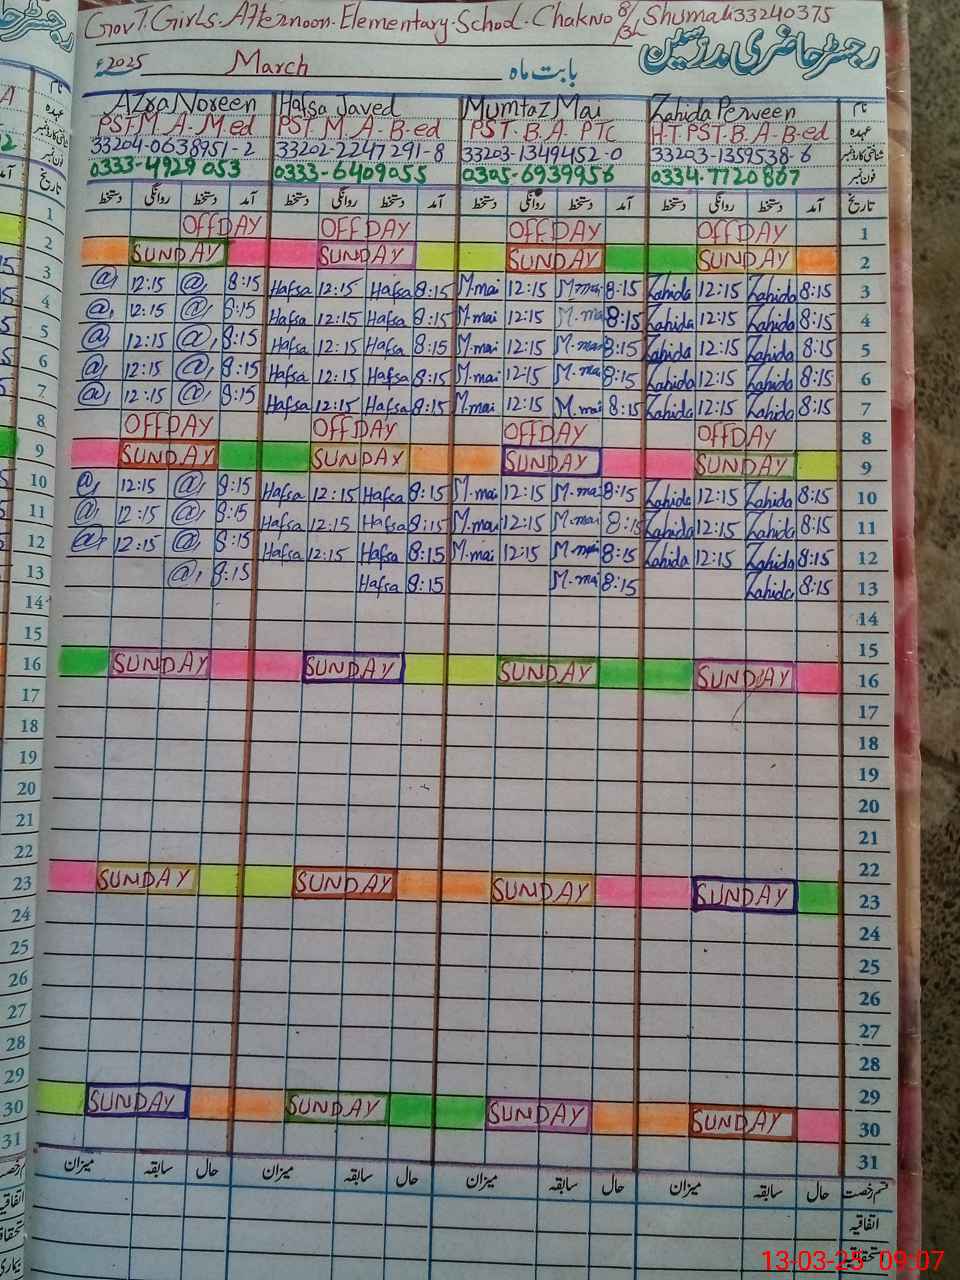 Govt. Girls. Afternoon. Elementary. School. Chak No 8/3L Shumali 33240375
رجسٹر حاضری مدرسین
2025ء March بابت ماہ
Azra Noreen Hafsa Javed Mumtaz Mai Zahida Perween نام
PST.M.A.M.ed PST.M.A.B-ed PST.B.A.PTC H.T.PST.B.A.B-ed عہدہ
33204-0638951-2 33202-2247291-8 33203-1349452-0 33203-1359538-6 شناختی کارڈ نمبر
0333-4929053 0333-6409055 0305-6939956 0334.7720867 فون نمبر
دستخط روانگی دستخط آمد دستخط روانگی دستخط آمد دستخط روانگی دستخط آمد دستخط روانگی دستخط آمد تاریخ
1 OFFDAY OFFDAY OFFDAY OFFDAY 1
2 SUNDAY SUNDAY SUNDAY SUNDAY 2
3 @, 12:15 @, 8:15 Hafsa 12:15 Hafsa 8:15 M.mai 12:15 M.mai 8:15 Zahida 12:15 Zahida 8:15 3
4 @, 12:15 @, 8:15 Hafsa 12:15 Hafsa 8:15 M.mai 12:15 M.mai 8:15 Zahida 12:15 Zahida 8:15 4
5 @, 12:15 @, 8:15 Hafsa 12:15 Hafsa 8:15 M.mai 12:15 M.mai 8:15 Zahida 12:15 Zahida 8:15 5
6 @, 12:15 @, 8:15 Hafsa 12:15 Hafsa 8:15 M.mai 12:15 M.mai 8:15 Zahida 12:15 Zahida 8:15 6
7 @, 12:15 @, 8:15 Hafsa 12:15 Hafsa 8:15 M.mai 12:15 M.mai 8:15 Zahida 12:15 Zahida 8:15 7
8 OFFDAY OFFDAY OFFDAY OFFDAY 8
9 SUNDAY SUNDAY SUNDAY SUNDAY 9
10 @, 12:15 @, 8:15 Hafsa 12:15 Hafsa 8:15 M.mai 12:15 M.mai 8:15 Zahida 12:15 Zahida 8:15 10
11 @, 12:15 @, 8:15 Hafsa 12:15 Hafsa 8:15 M.mai 12:15 M.mai 8:15 Zahida 12:15 Zahida 8:15 11
12 @, 12:15 @, 8:15 Hafsa 12:15 Hafsa 8:15 M.mai 12:15 M.mai 8:15 Zahida 12:15 Zahida 8:15 12
13 @, 8:15 Hafsa 8:15 M.mai 8:15 Zahida 8:15 13
14 14
15 15
16 SUNDAY SUNDAY SUNDAY SUNDAY 16
17 17
18 18
19 19
20 20
21 21
22 22
23 SUNDAY SUNDAY SUNDAY SUNDAY 23
24 24
25 25
26 26
27 27
28 28
29 29
30 SUNDAY SUNDAY SUNDAY SUNDAY 30
31 31
میزان سابقہ حال میزان سابقہ حال میزان سابقہ حال میزان سابقہ حال قسم رخصت
اتفاقیہ
13-03-25 09:07